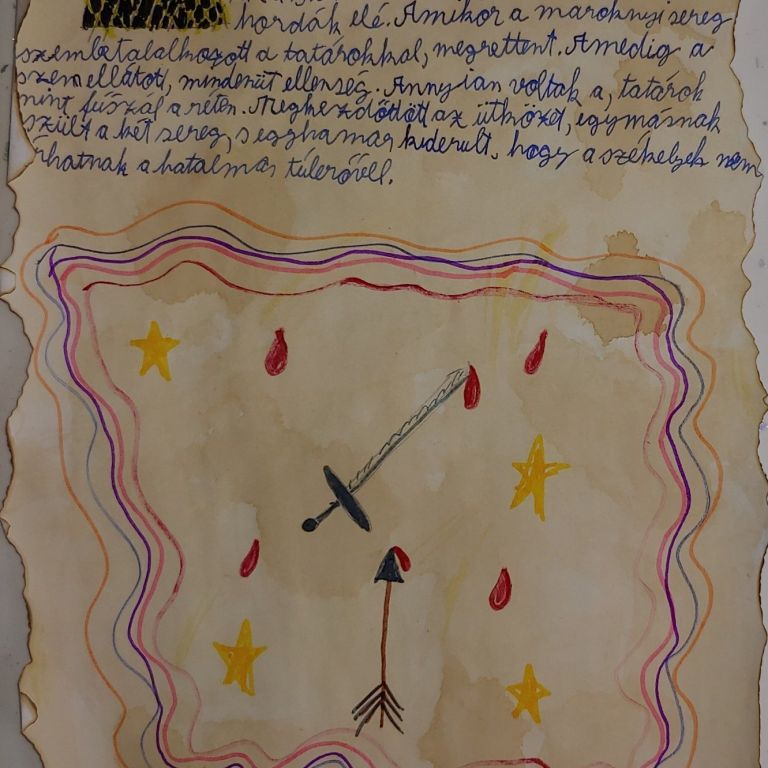 hordák elé. Amikor a maroknyi sereg
szembetalalkozott a tatárokkal, megrettent. Ameddig a
szem ellátott, mindenüt ellenség. Annyian voltak a, tatárok
mint fűszál a réten. Megkezdődött az ütközet, egymásnak
szült a két sereg, s egghamar kiderült, hogy a székelyek nem
írhatnak a hatalmas túlerővell.